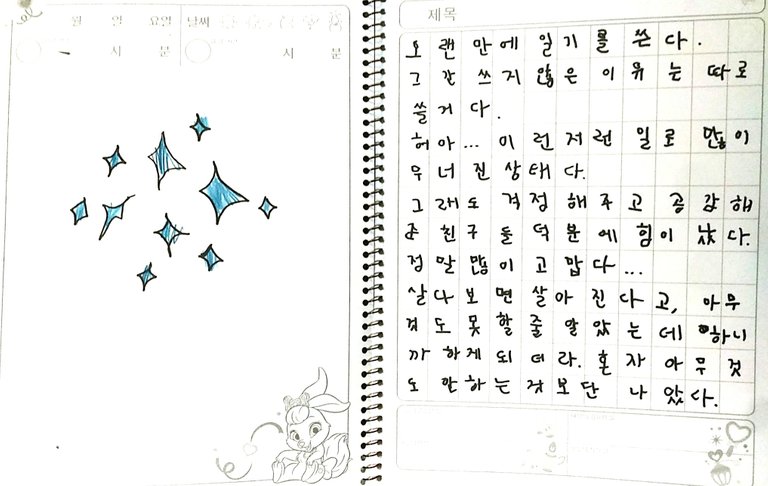 월 일 요일 날씨
시 분 시 분
제목
오랜만에 일기를 쓴다.
그간 쓰지 않은 이유는 따로
쓸거다.
허아... 이런저런 일로 많이
무너진 상태다.
그래도 걱정해주고 공감해
준 친구들 덕분에 힘이 났다.
정말 많이 고맙다...
살다보면 살아진다고, 아무
것도 못할 줄 알았는데 하니
까 하게 되더라. 혼자 아무것
도 안하는 것보단 나았다.